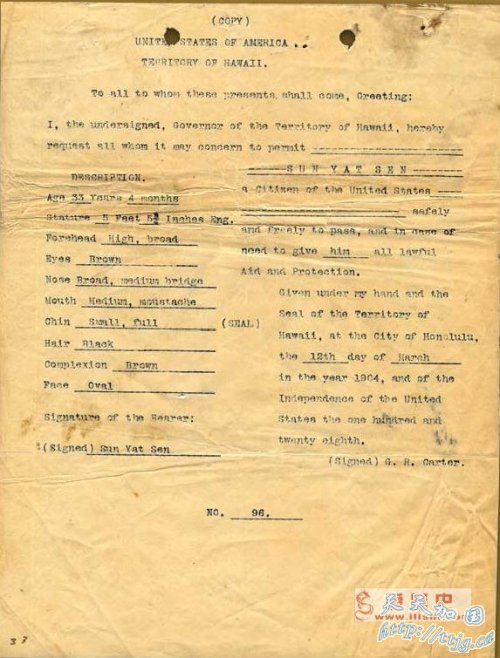 (COPY)
UNITED STATES OF AMERICA
TERRITORY OF HAWAII.
To all to whom these presents shall come, Greeting:
I, the undersigned, Governor of the Territory of Hawaii, hereby
request all whom it may concern to permit
SUN YAT SEN
a Citizen of the United States
safely
and freely to pass, and in case of
need to give him all lawful
Aid and Protection.
DESCRIPTION.
Age 33 Years 4 months
Stature 5 Feet 5½ Inches Eng.
Forehead High, broad
Eyes Brown
Nose Broad, medium bridge
Mouth Medium, moustache
Chin Small, full
Hair Black
Complexion Brown
Face Oval
Signature of the Bearer:
(Signed) Sun Yat Sen
(SEAL)
Given under my hand and the
Seal of the Territory of
Hawaii, at the City of Honolulu,
the 12th day of March
in the year 1904, and of the
Independence of the United
States the one hundred and
twenty eighth.
(Signed) G. R. Carter.
NO. 96.
37
天天加国
http://ttjg.ca